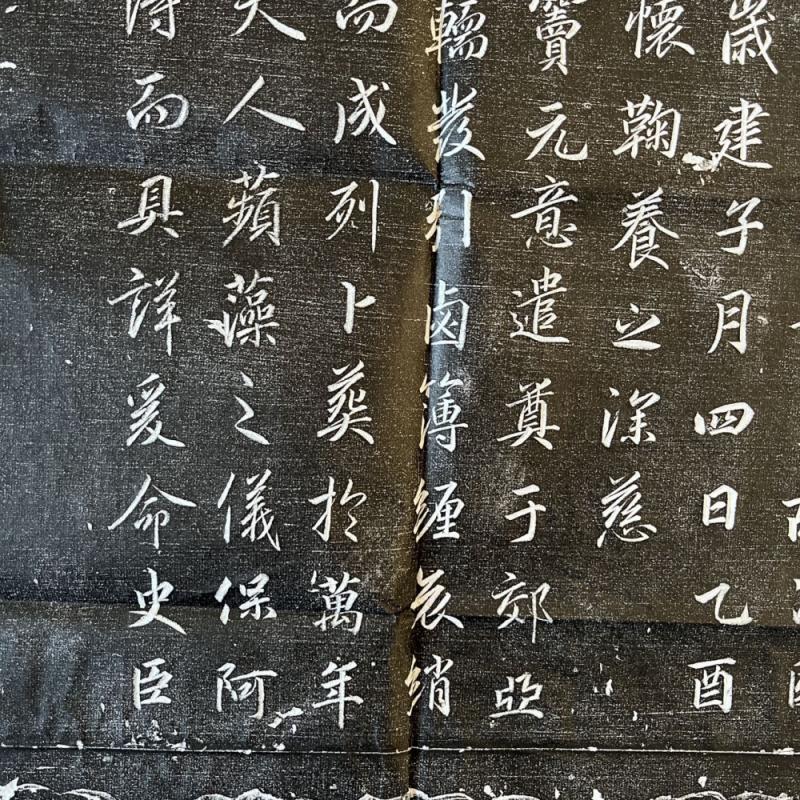 歲建子月四日乙酉
懷鞠養之深慈
元意遣奠于郊亞
轜發引鹵簿纏哀綃
而成列卜葬於萬年
夫人蘋藻之儀保阿
得而具詳爰命史臣